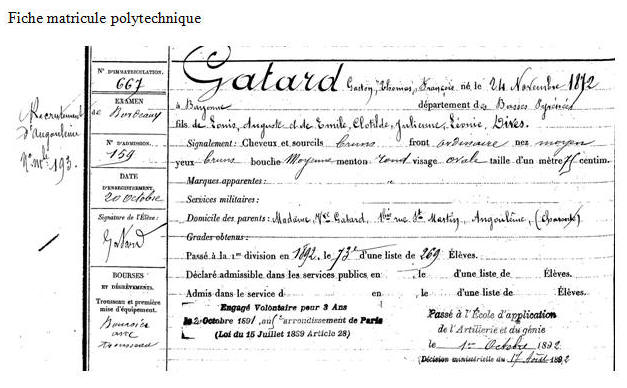 Fiche matricule polytechnique
Recrutement
d'Angoulême
N° mle 193.
N° D'IMMATRICULATION.
667
EXAMEN
de Bordeaux
N° D'ADMISSION.
159
DATE
D'ENREGISTREMENT.
20 octobre
Signature de l'Élève:
Gatard
BOURSES
ET DÉGRÈVEMENTS.
Trousseau et première
mise d'équipement.
Boursier
avec
trousseau
Gatard Gaston, Thomas, François né le 24 Novembre 1872
à Bayonne département des Basses Pyrénées
fils de Louis, Auguste et de Emile, Clotilde, Julienne, Léonie, Dires.
Signalement: Cheveux et sourcils bruns front ordinaire nez moyen
yeux bruns bouche Moyenne menton rond visage ovale taille d'un mètre 75 centim.
Marques apparentes:
Services militaires:
Domicile des parents: Madame Vve Gatard, rue St Martin, Angoulême, (Charente)
Grades obtenus:
Passé à la 1re division en 1892. le 73e d'une liste de 269 Élèves.
Déclaré admissible dans les services publics en , le d'une liste de Élèves.
Admis dans le service d en , le d'une liste de Élèves.
Engagé Volontaire pour 3 Ans
le 2 Octobre 1891, au 5e arrondissement de Paris
(Loi du 15 Juillet 1889 Article 28)
Passé à l'École d'application
de l'Artillerie et du génie
le 1er Octobre 1892
(Décision ministérielle du 17 Août 1892